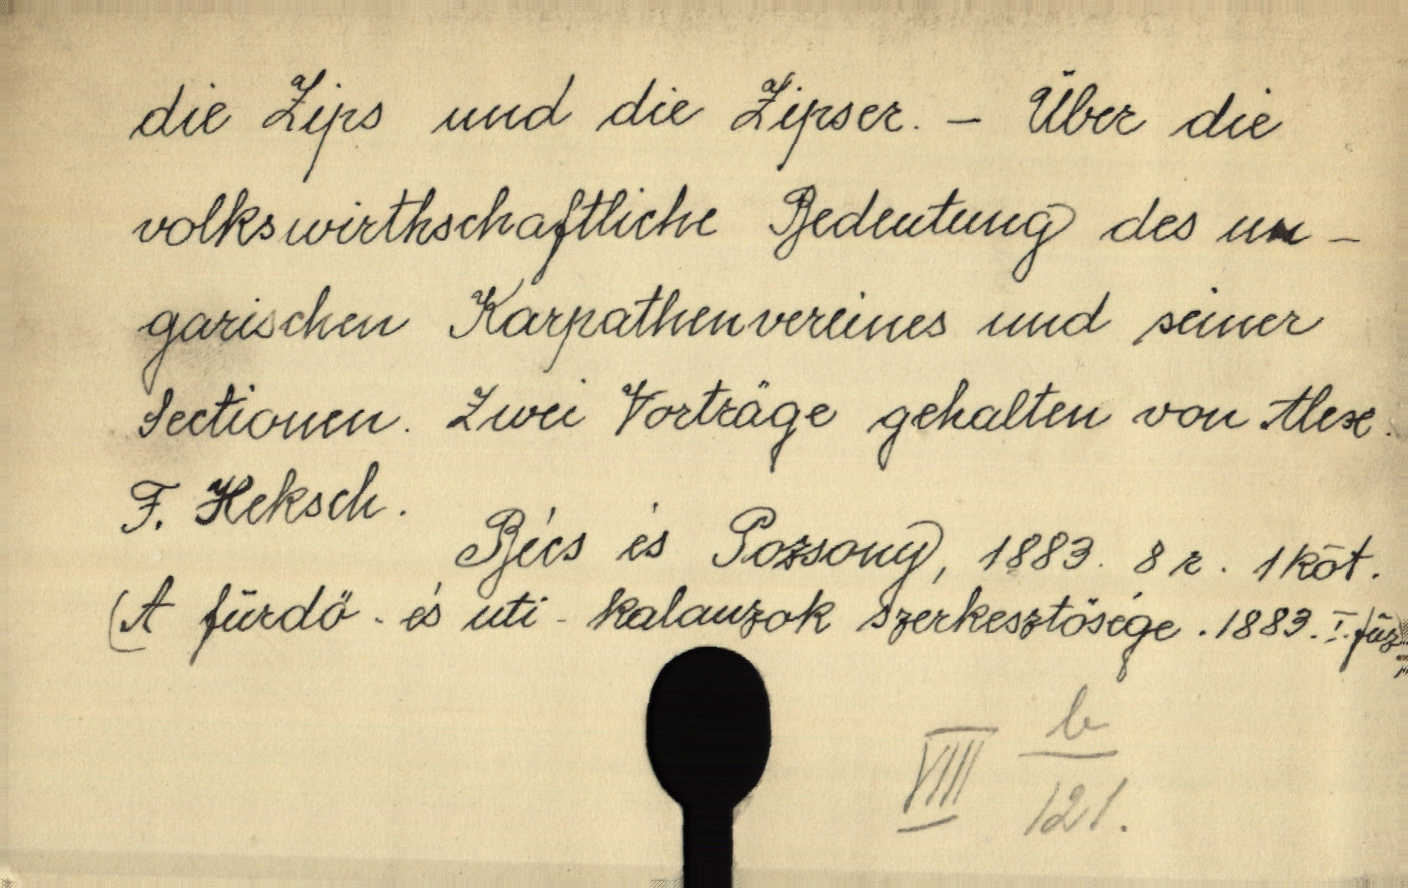 die Zips und die Zipser. – Über die
volkswirthschaftliche Bedeutung des un-
garischen Karpathenvereines und seiner
Sectionen. Zwei Vorträge gehalten von Alex.
F. Heksch.
Bécs és Pozsony, 1883. 8 r. 1 köt.
(A fürdő- és uti-kalauzok szerkesztősége. 1883. I. füz
VIII b
121.